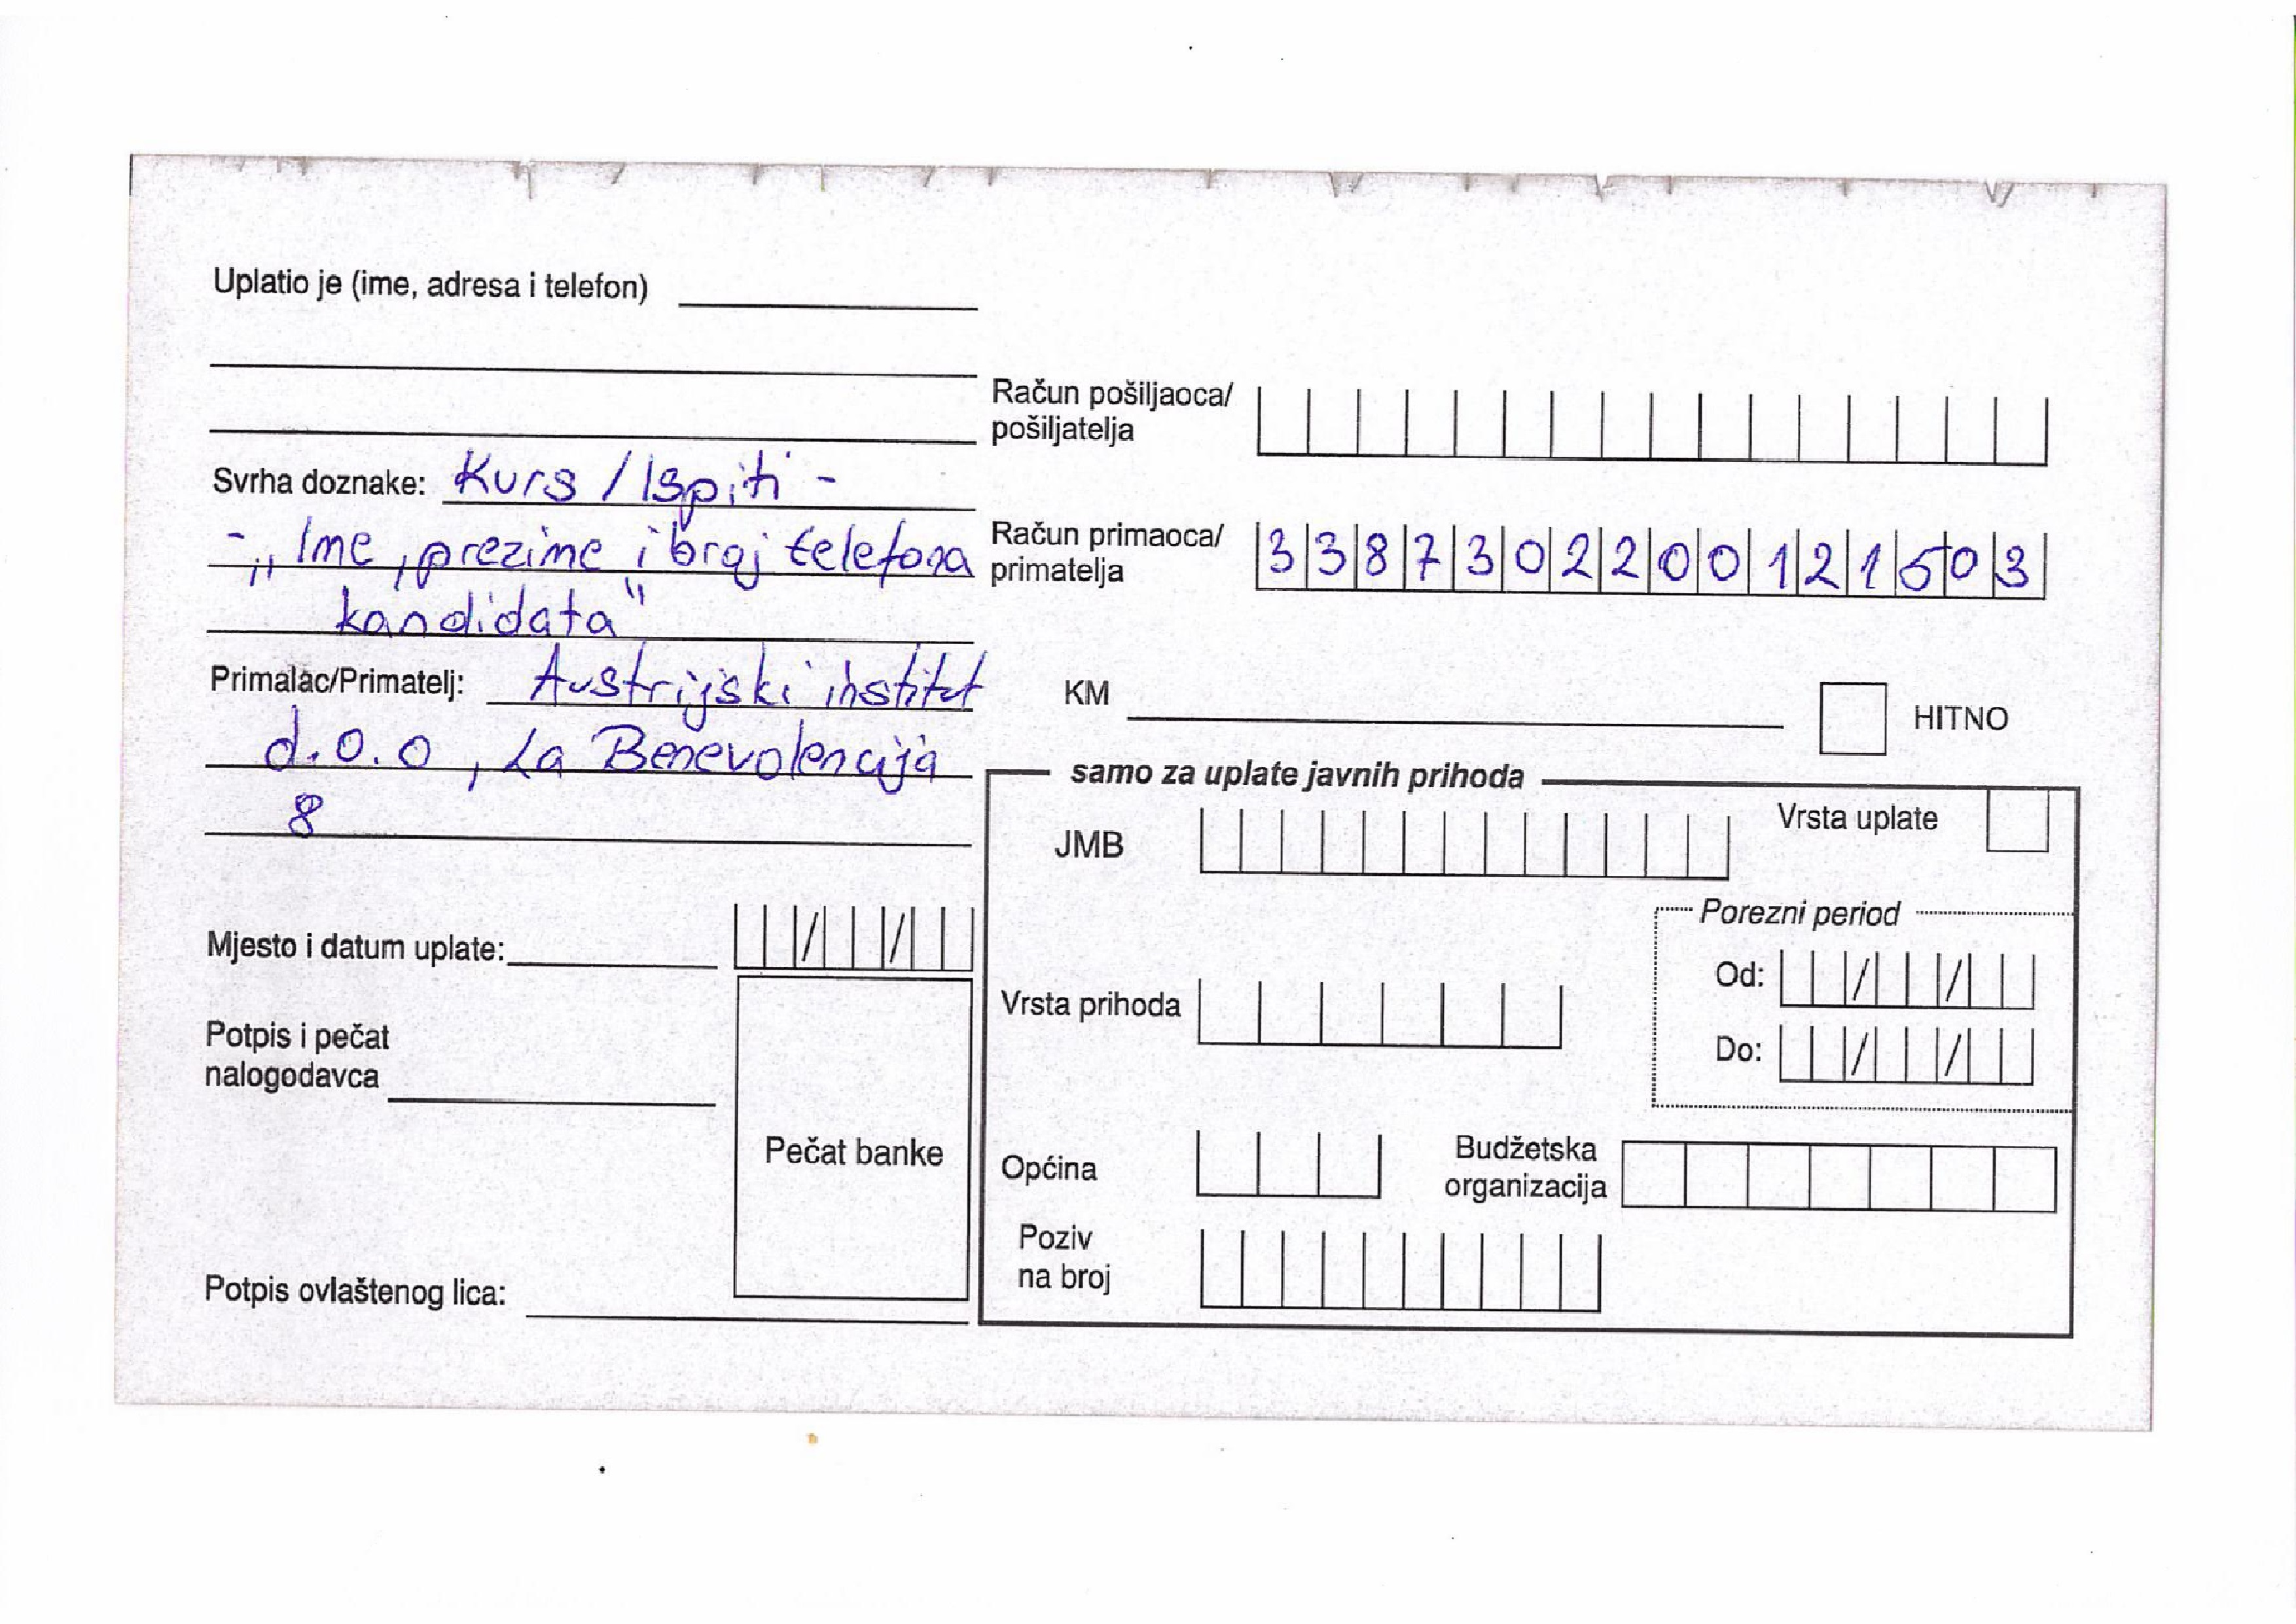 Uplatio je (ime, adresa i telefon)
Račun pošiljaoca/
pošiljatelja
Svrha doznake: Kurs / Ispiti -
- „ Ime, prezime i broj telefona
kandidata"
Račun primaoca/
primatelja
3387302200121503
Primalac/Primatelj: Austrijski institut
d.o.o, La Benevolencija
8
KM
HITNO
samo za uplate javnih prihoda
JMB
Vrsta uplate
Porezni period
Mjesto i datum uplate: / /
Od: / /
Vrsta prihoda
Do: / /
Potpis i pečat
nalogodavca
Pečat banke
Općina
Budžetska
organizacija
Poziv
na broj
Potpis ovlaštenog lica: